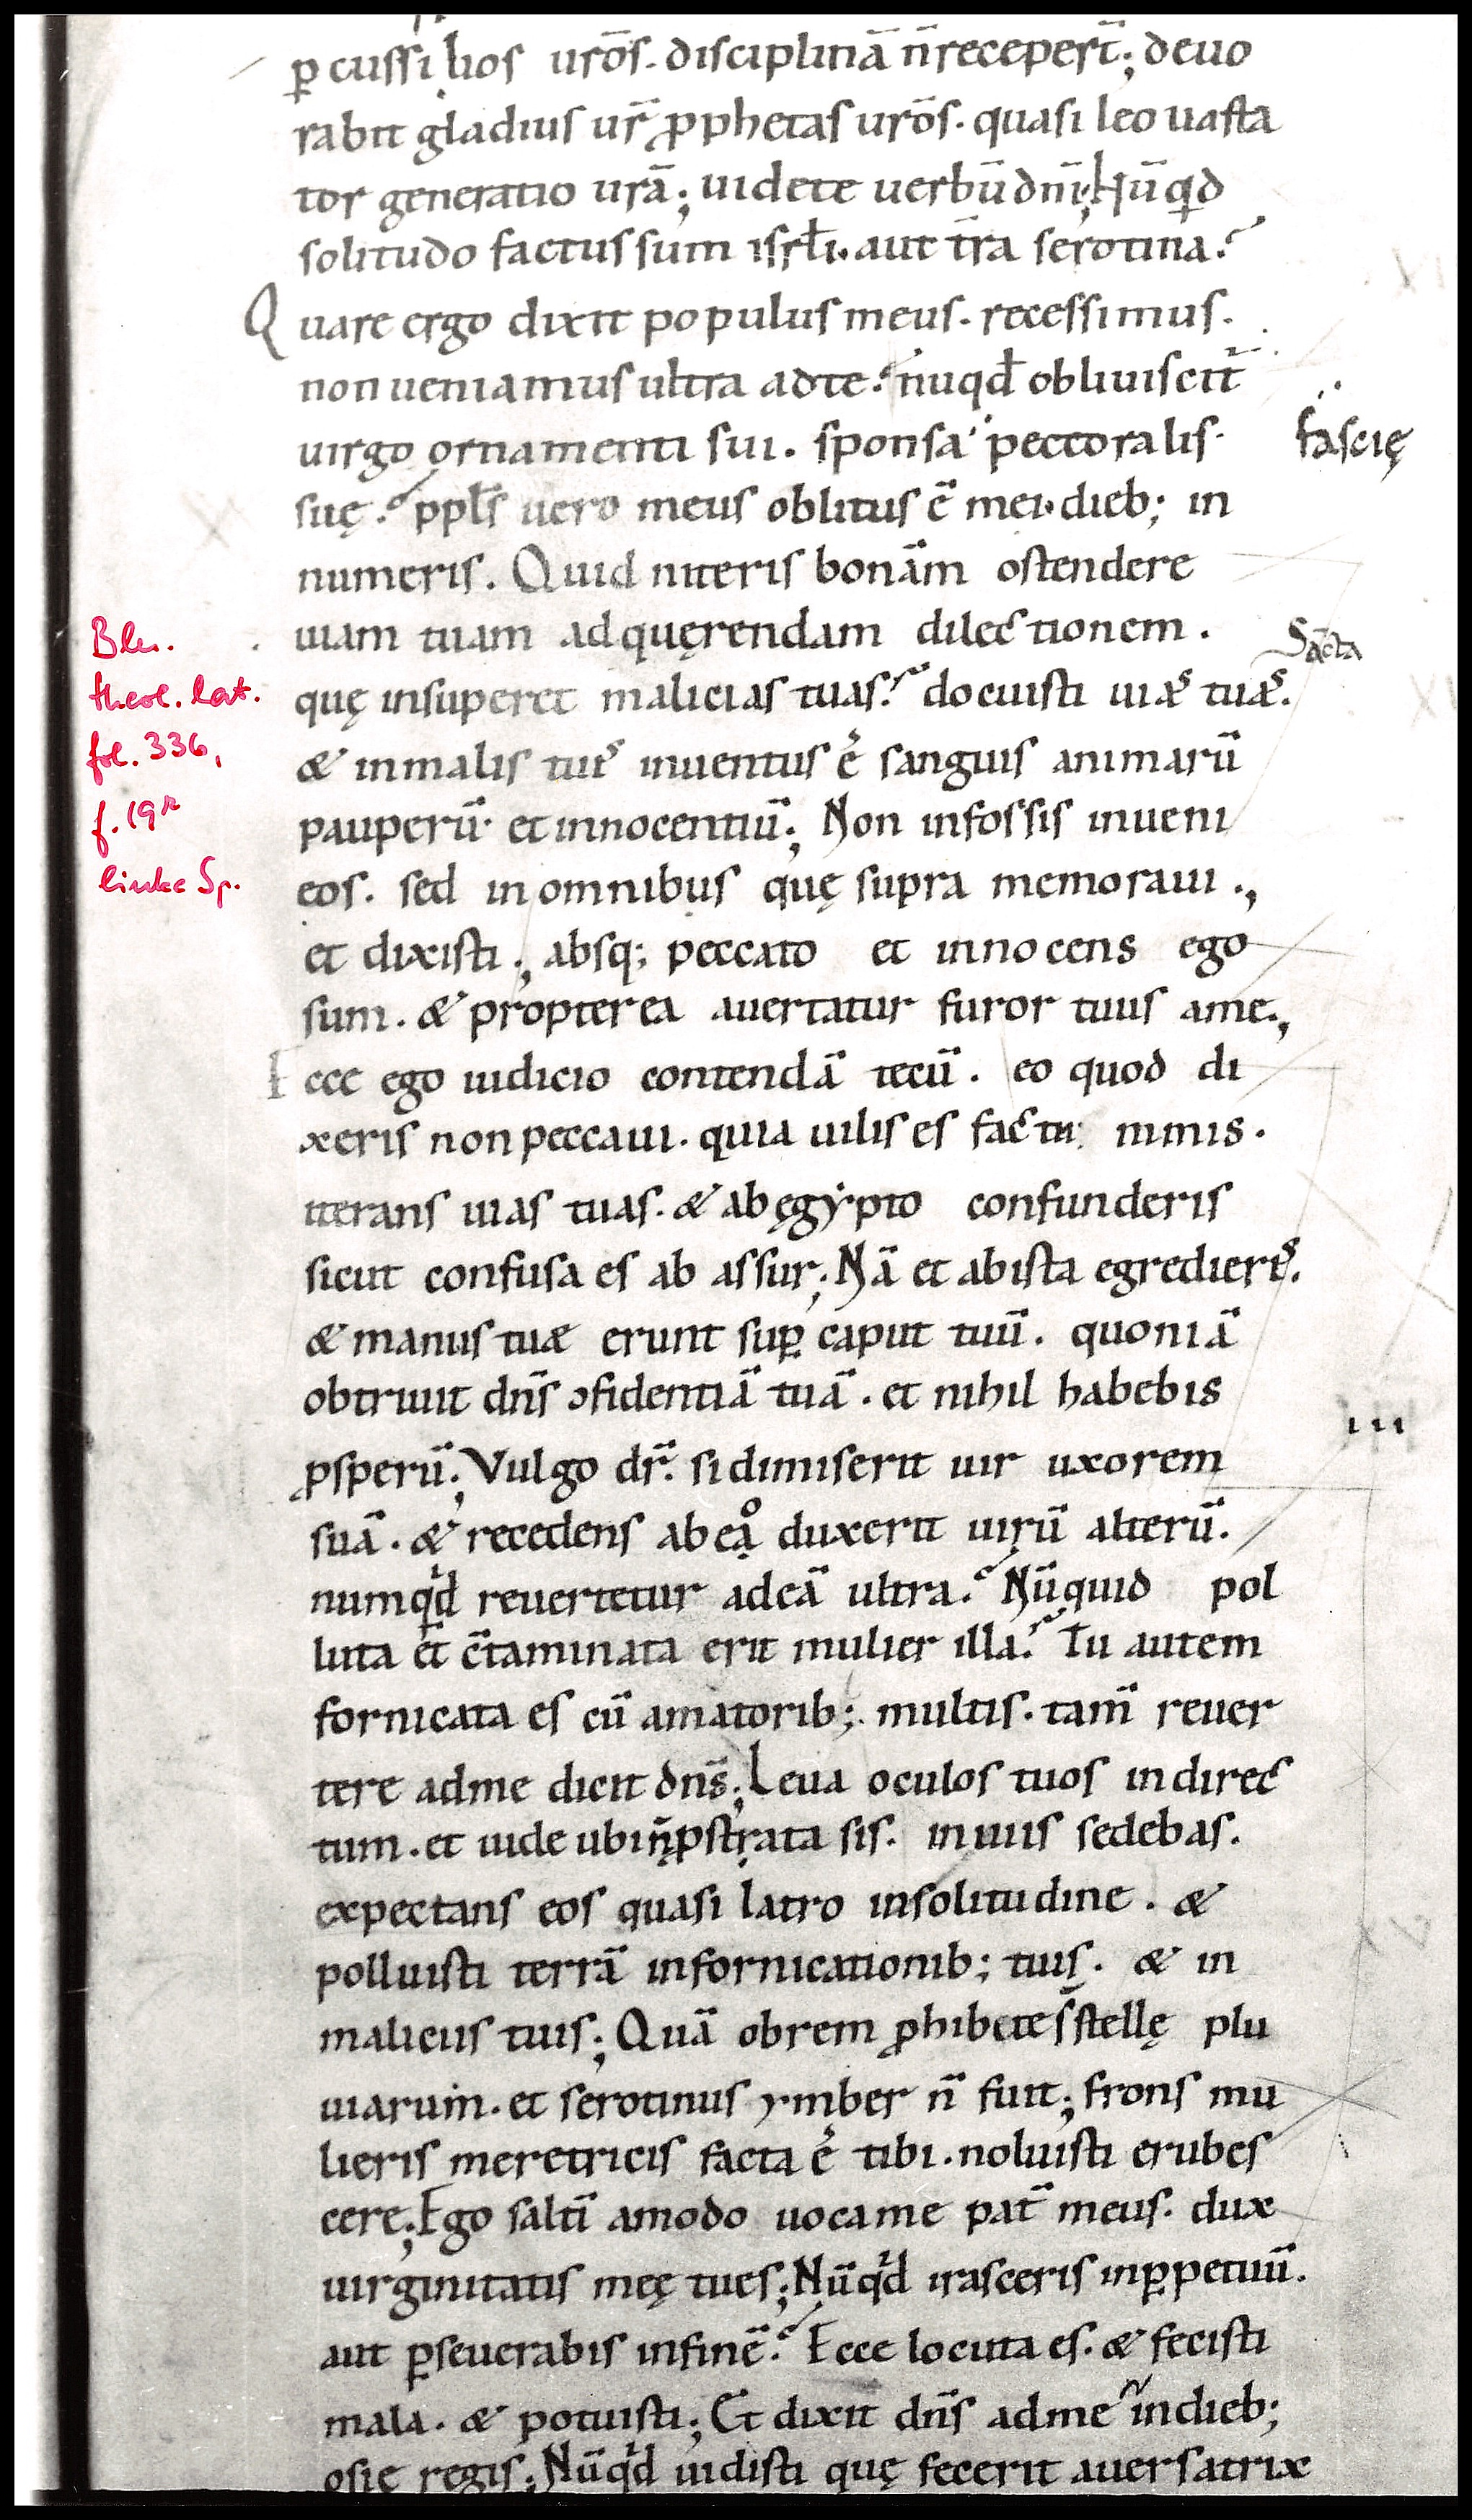 ꝑcussi lios urōs. disciplinā n̄ receper̄t; deuo
rabit gladius ur̄ ꝓphetas urōs. quasi leo uasta
tor generatio urā; uidete uerbū dn̄i; Nūqͥd
solitudo factus sum isrłi. aut tr̄a serotina?
Quare ergo dixit populus meus. recessimus.
non ueniamus ultra adte? nuqd̄ obliuiscit̄
uirgo ornamenti sui. sponsa peccoralis
fascię
suę? ppłs uero meus oblitus ē mei. dieb; in
numeris. Quid niteris bonām ostendere
uiam tuam adquęrendam dilectionem.
Sācta
quę insuperet malicias tuas? docuisti uiaˢ tuaˢ.
& inmalis tuiˢ inuentus ē sanguis animarū
pauperū et innocentiū; Non infossis inueni
eos. sed in omnibus quę supra memoraui.,
et dixisti; absq; peccato et innocens ego
sum. & propterea auertatur furor tuus ame.,
Ecce ego iudicio contendā tecū. eo quod di
xeris non peccaui. quia uilis es facta nimis.
iterans uias tuas. & ab ęgypto confunderis
sicut confusa es ab assur; Nā et abista egredieriˢ.
& manus tuæ erunt suꝑ caput tuū. quoniā
obtriuit dn̄s ɔfidentiā tuā. et nihil habebis
ꝓsperū; Vulgo dr̄. si dimiserit uir uxorem
III
suā. & recedens ab eạͦ duxerit uirū alterū.
numqͥd reuertetur adeā ultra? Nūquid pol
luta et c̄taminata erit mulier illa? Tu autem
fornicata es cū amatorib; multis. tam̄ reuer
tere adme dicit dn̄s; Leua oculos tuos indirec
tum. et uide ubi n̄ ꝓstrata sis. in uiis sedebas.
expectans eos quasi latro insolitudine. &
polluisti terrā infornicationib; tuis. & in
maliciis tuis; Quā obrem ꝓhibitę s̄ stellę plu
uiarum. et serotinus ymber n̄ fuit; frons mu
lieris meretricis facta ē tibi. noluisti erubes
cere; Ego saltī amodo uocame pat̄ meus. dux
uirginitatis meę tues; Nūqͥd irasceris inꝑpetuū.
aut ꝑseuerabis infinē? Ecce locuta es. & fecisti
mala. & potuisti; Et dixit dn̄s adme indieb;
osię regis; Nūqͥd uidisti quę fecerit auersatrix
Ble.
theol. lat.
fol. 336,
f. 19ʳ
linke Sp.